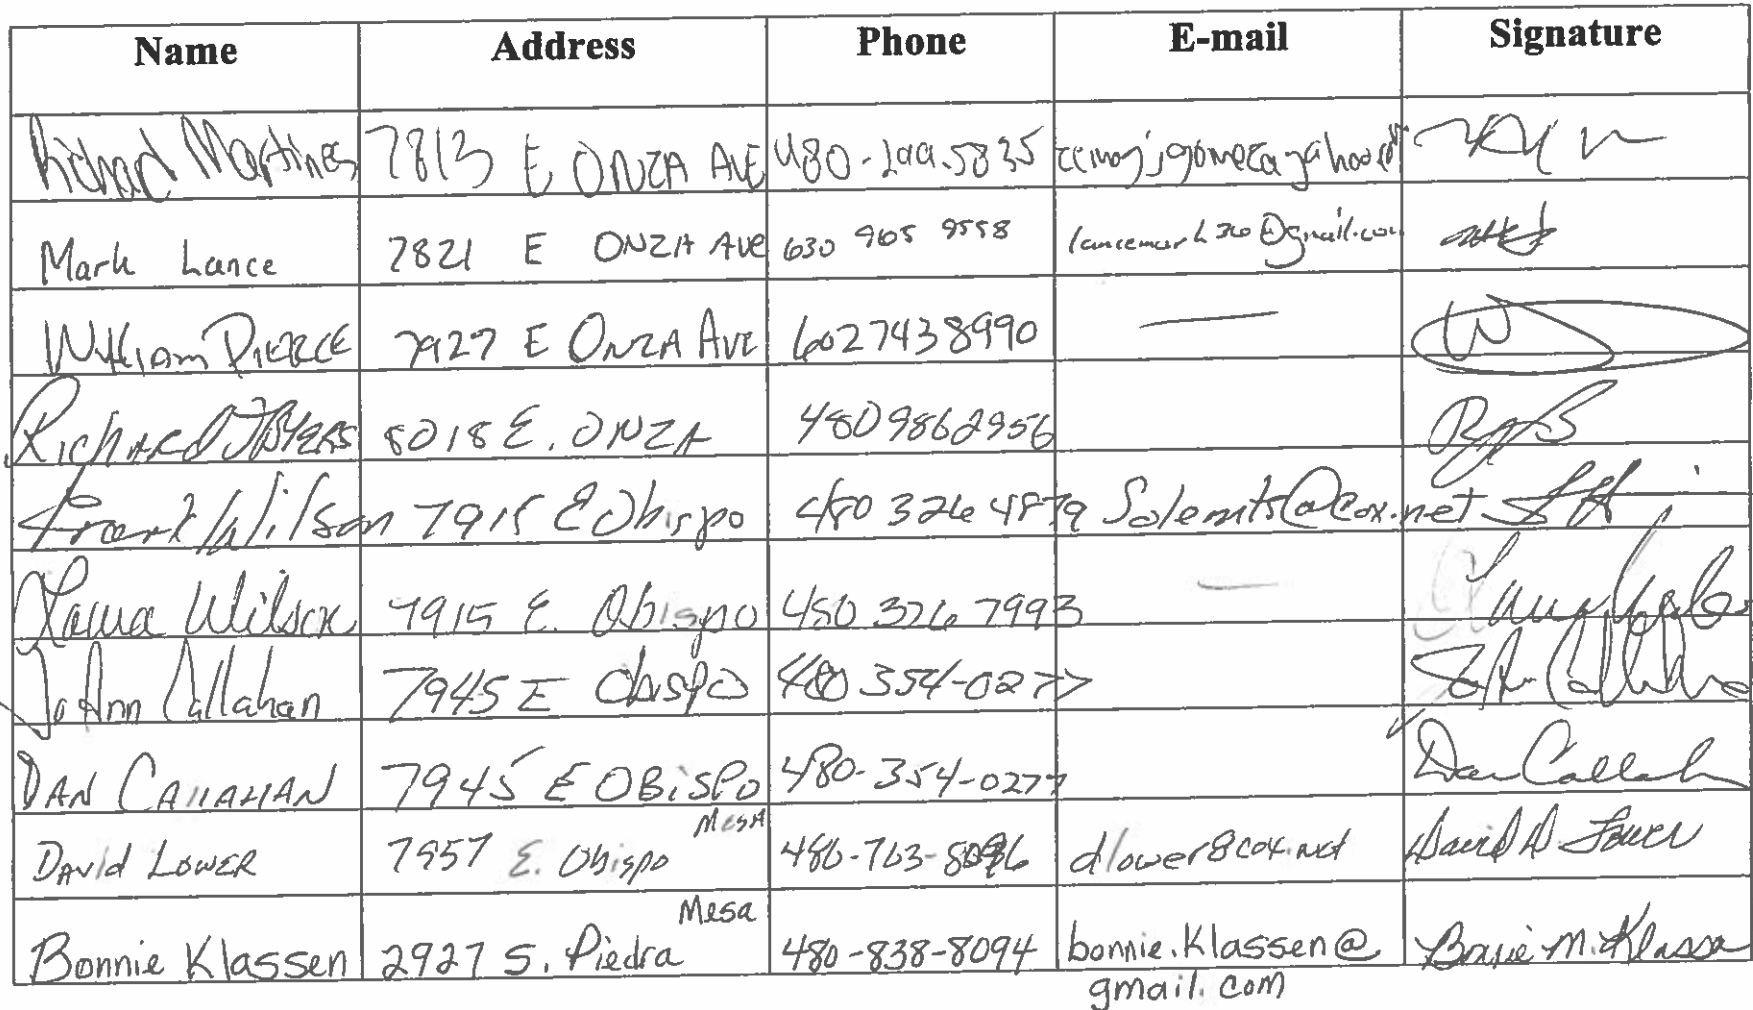 Name Address Phone E-mail Signature
Richard Martines 7813 E ONZA AVE
Mark Lance 7821 E ONZA AVE 630 965 9558 lancemark36@gmail.com
William PIERCE 7927 E ONZA AVE 6027438990 —
Richard J BYERS 8018 E. ONZA 4809862956
Frank Wilson 7915 E Obispo 480 326 4879
Laura Wilson 7915 E. Obispo 480 326 7993 —
JoAnn Callahan 7945 E Obispo 480 354-0277
DAN CALLAHAN 7945 E OBISPO 480-354-0277 Dan Callah
Mesa
David LOWER 7957 E. Obispo dlower@cox.net David D. Lower
Mesa
Bonnie Klassen 2927 S. Piedra 480-838-8094 bonnie.klassen@ Bonnie M. Klassen
gmail.com